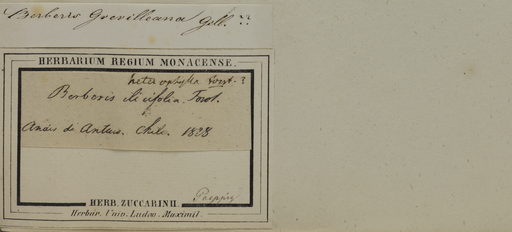 Berberis Grevilleana Gill.
HERBARIUM REGIUM MONACENSE.
heterophylla
Berberis ilicifolia. Forst.
de Antuco. Chile. 1828
HERB. ZUCCARINII.
Poeppig
Herbar. Univ. Ludov. Maximil.